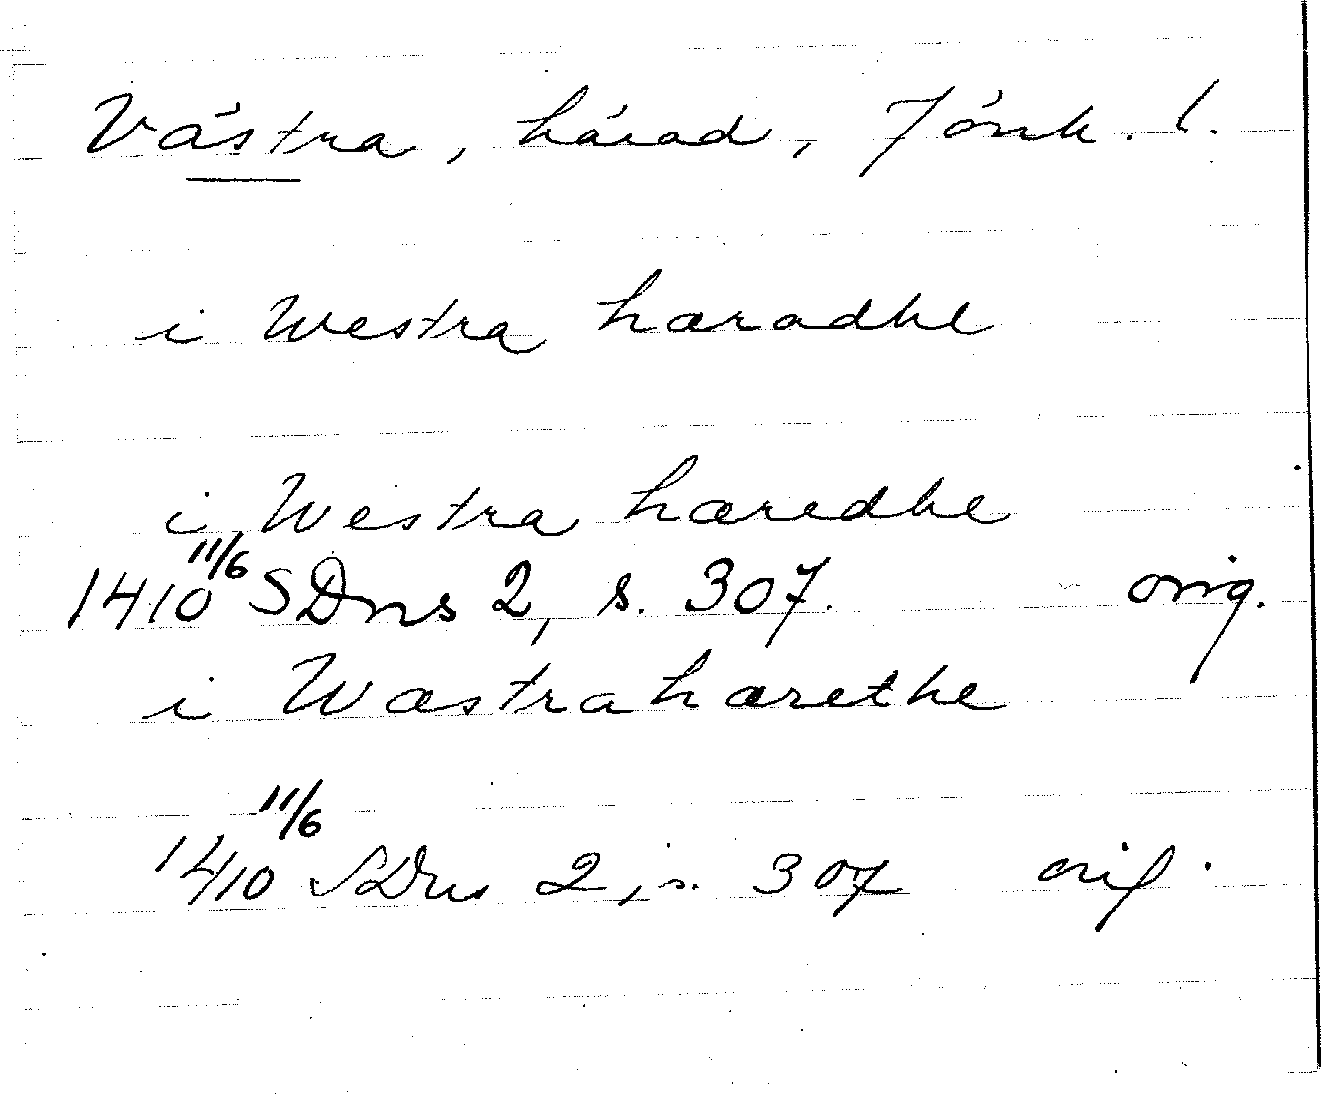 Västra, härad, Jönk. l.
i Westra haradhe
i Westra hæredhe
1410 11/6 SDns 2, s. 307. orig.
i Wæstrahærethe
1410 11/6 SDns 2, s. 307 orig.